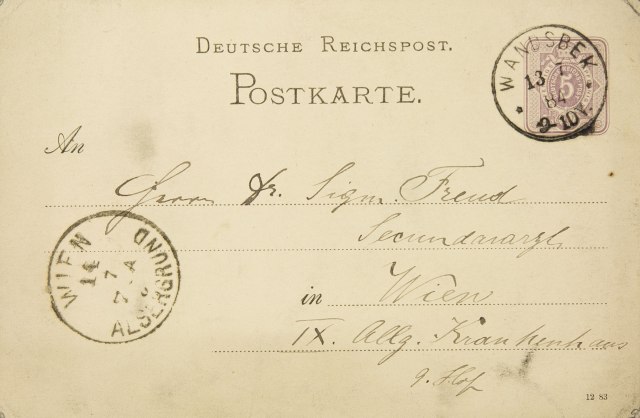 DEUTSCHE REICHSPOST.
POSTKARTE.
WANDSBEK
13 7
84
9-10V.
5
An
Herrn Dr. Sigm. Freud
Secundararzt
in Wien
IX. Allg. Krankenhaus
9. Hof
WIEN
14
7
ALSERGRUND
12 83